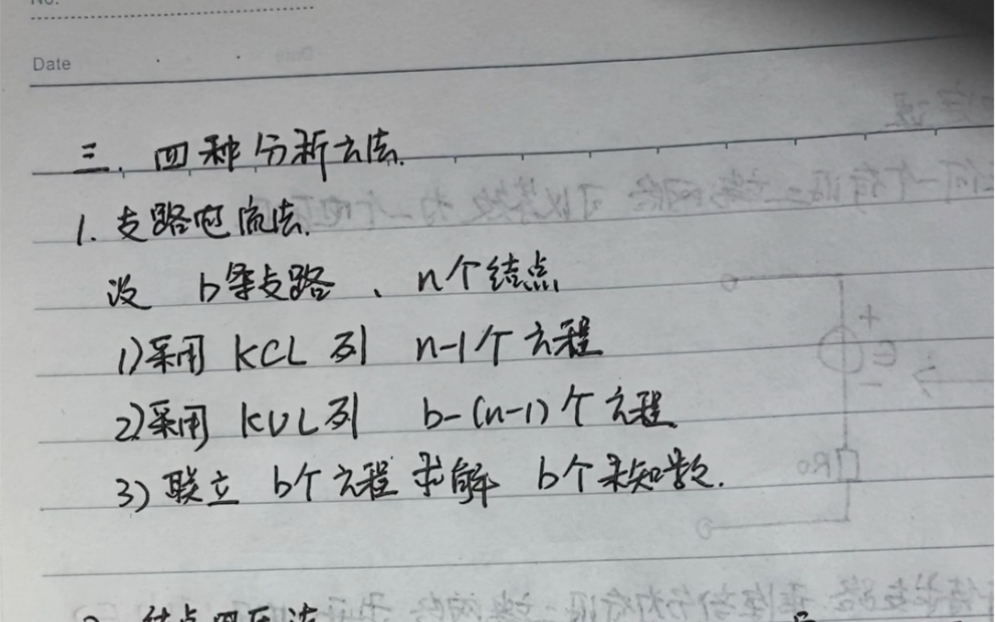 No.
Date
三. 四种分析方法.
1. 支路电流法.
设 b条支路、n个结点
1)采用 KCL 列 n-1个方程
2)采用 KVL列 b-(n-1)个方程.
3) 联立 b个方程求解 b个未知数.
2. 结点电压法